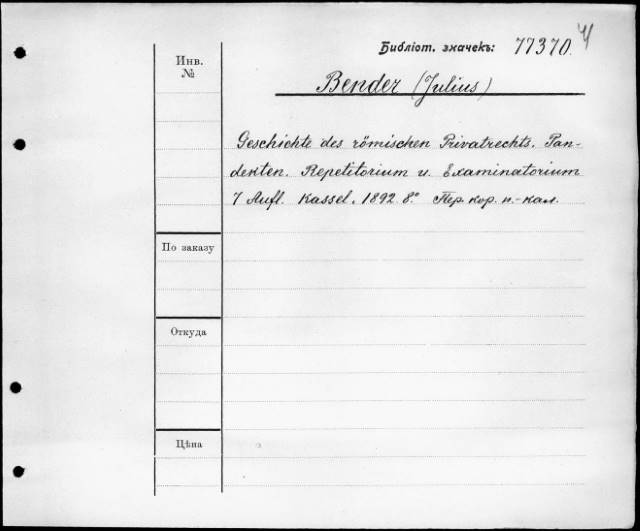 Библіот. значекъ: 77370. Ч
Инв.
№
Bender (Julius)
Geschichte des römischen Privatrechts. Pan-
dekten. Repetitorium u. Examinatorium
7 Aufl. Kassel. 1892. 8.° Пер. кор. п.-кал.
По заказу
Откуда
Цѣна